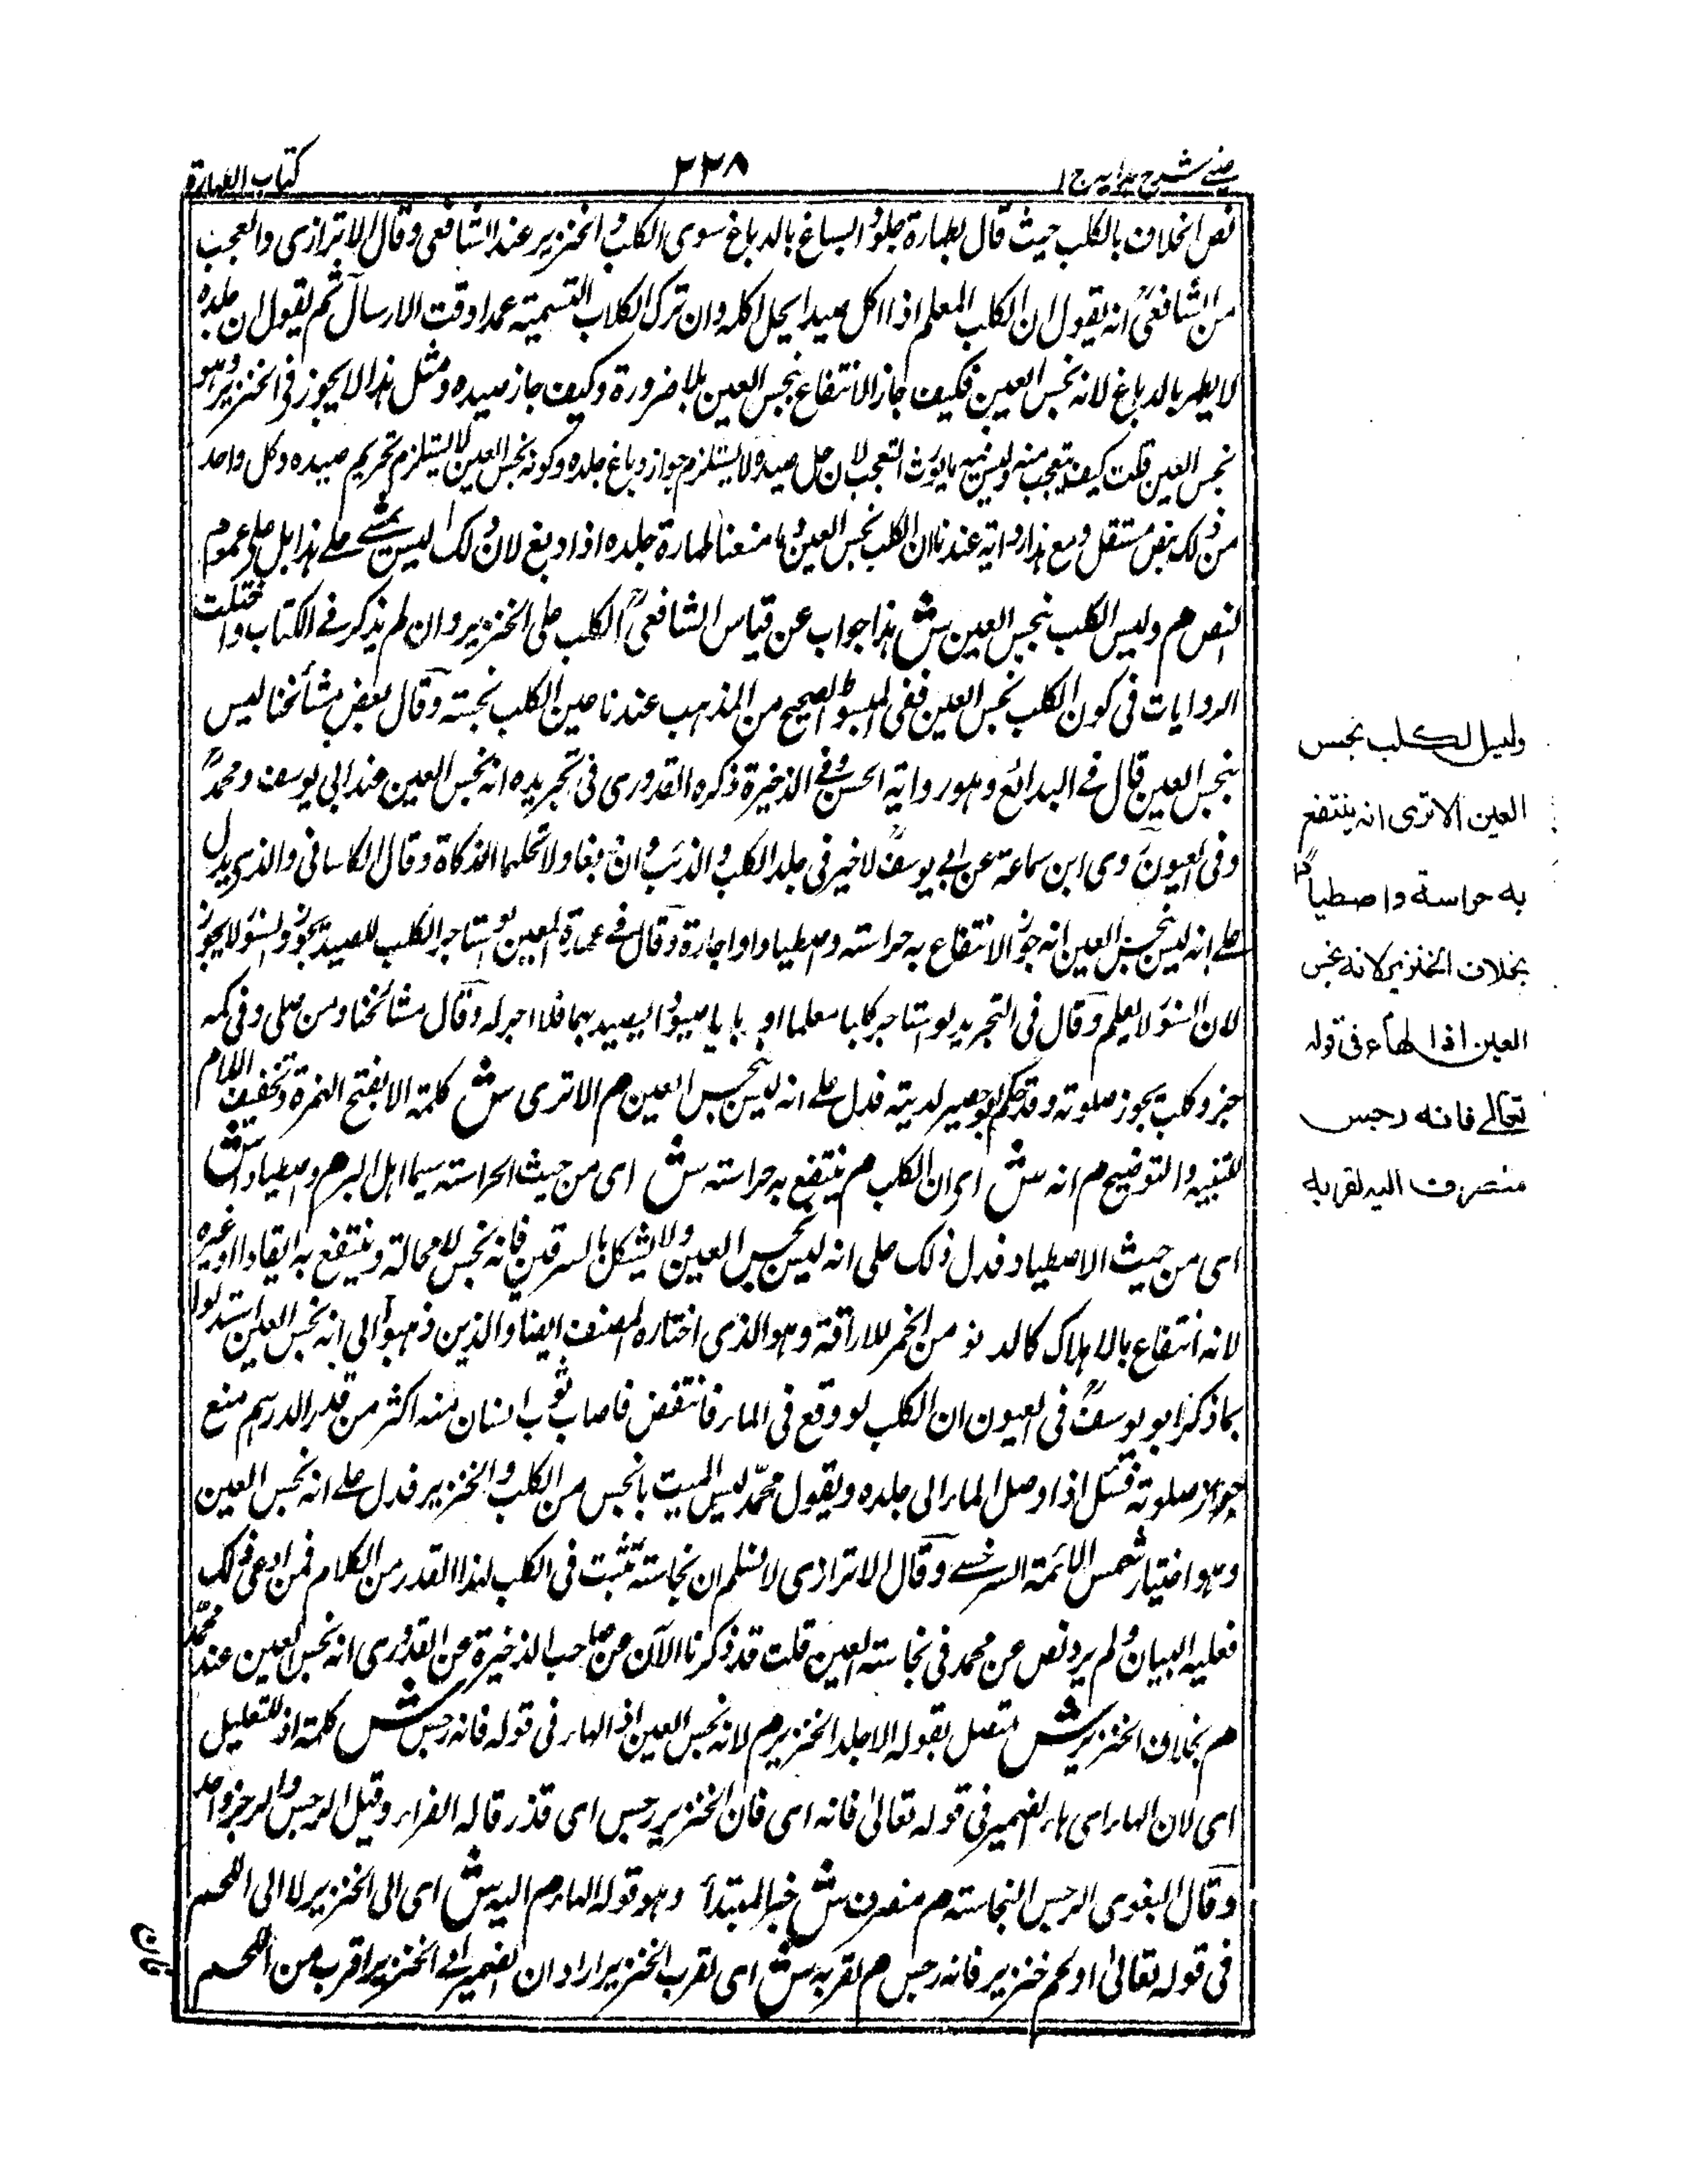 عینی شرح ہدایہ ج ١
٢٣٨
کتاب الطہارة
نص الخلاف بالکلب حیث قال بطہارة جلود السباع بالدباغ سوی الکلب والخنزیر عند الشافعی وقال الاترازی والعجب
من الشافعیؒ انہ یقول ان الکلب المعلم اذا اکل صیدا یحل اکلہ وان ترک الکلاب التسمیتہ عمدا وقت الارسال ثم یقول ان جلدہ
لا یطہر بالدباغ لانہ نجس العین فکیف جاز الانتفاع بنجس العین بلا ضرورة وکیف جاز صیدہ ومثل ہذا لا یجوز فی الخنزیر وہو
نجس العین قلت کیف یتعجب منہ ولیس فیہ ما یورث التعجب لان حل صیدہ لا یستلزم جواز دباغ جلدہ وکونہ نجس العین لا یستلزم تحریم صیدہ وکل واحد
من ذلک بنص مستقل ومع ہذا روایة عندنا ان الکلب نجس العین وما منعنا طہارة جلدہ اذا دبغ لان ذلک لیس بمشے علے ہذا بل علی عموم
النص م ولیس الکلب بنجس العین ش ہذا جواب عن قیاس الشافعیؒ الکلب علی الخنزیر وان لم یذکر فے الکتاب واختلفت
الروایات فی کون الکلب نجس العین ففی المبسوط الصحیح من المذہب عندنا عین الکلب نجستہ وقال بعض مشائخنا لیس
بنجس العین قال فے البدائع وہو روایة الحسن وفے الذخیرة ذکرہ القدوری فی تجریدہ انہ نجس العین عند ابی یوسف ومحمدؒ
وفی العیون روی ابن سماعة عن ابی یوسفؒ لا خیر فی جلد الکلب والذئب وان دبغا ولا تحلہما الذکاة وقال الکاسانی والذی یدل
علے انہ لیس بنجس العین انہ جوز الانتفاع بہ حراستہ واصطیادا واجارة وقال فے عمدة المعین لو استاجر الکلب للصید یجوز والسنور لا یجوز
لان السنور لا یعلم وقال فی التجرید لو استاجر کلبا معلما او بازیا صیودا لیصید بہما فلا اجر لہ وقال مشائخنا ومن صلی وفی کمہ
جرو کلب یجوز صلوتہ وقد فدل علے انہ لیس بنجس العین م الا تری ش کلمتہ الا بفتح الہمزة وتخفیف اللام
للتنبیہ والتوضیح م انہ ش ای ان الکلب م ینتفع بہ حراستہ ش ای من حیث الحراستہ سیما اہل البر م واصطیادا ش
ای من حیث الاصطیاد فدل ذلک علی انہ لیس بنجس العین ولا یشکل بالسرقین فانہ نجس لا محالة وینتفع بہ ایقادا او غیرہ
لانہ انتفاع بالاہلاک کالدنو من الخمر للاراقة وہو الذی اختارہ المصنف ایضا والذین ذہبوا الی انہ نجس العین استدلوا
بما ذکر ابو یوسفؒ فی العیون ان الکلب لو وقع فی الماء فانتفض فاصاب ثوب انسان منہ اکثر من قدر الدرہم منع
جواز صلوتہ قیل اذا وصل الماء الی جلدہ ویقول محمدؒ لیس المیت بانجس من الکلب والخنزیر فدل علے انہ نجس العین
وہو اختیار شمس الائمة السرخسے وقال الاترازی لا نسلم ان نجاستہ تثبت فی الکلب لہذا القدر من الکلام فمن ادعی ذلک
فعلیہ البیان ولم یرد نص عن محمد فی نجاستہ العین قلت قد ذکرنا الآن عن صاحب الذخیرة عن القدوری انہ نجس العین عند محمدؒ
م بخلاف الخنزیر ش متصل بقولہ الا جلد الخنزیر م لانہ نجس العین اذ الہاء فی قولہ فانہ رجس ش کلمتہ اذ للتعلیل
ای لان الہاء ای ہاء الضمیر فی قولہ تعالیٰ فانہ ای فان الخنزیر رجس ای قذر قالہ الفراء وقیل الرجس والرجز واحد
وقال البغوی الرجس النجاستہ م منصرف ش خبر المبتدأ وہو قولہ الہاء م الیہ ش ای الی الخنزیر لا الی اللحم
فی قولہ تعالیٰ او لحم خنزیر فانہ رجس م لقربہ ش ای لقرب الخنزیر اراد ان الضمیر الے الخنزیر اقرب من اللحم
ولیس الکلب بنجس
العین الا تری انہ ینتفع
بہ حراسة واصطیادا
بخلاف الخنزیر لانہ نجس
العین اذ الہاء فی قولہ
تعالے فانہ رجس
منصرف الیہ لقربہ